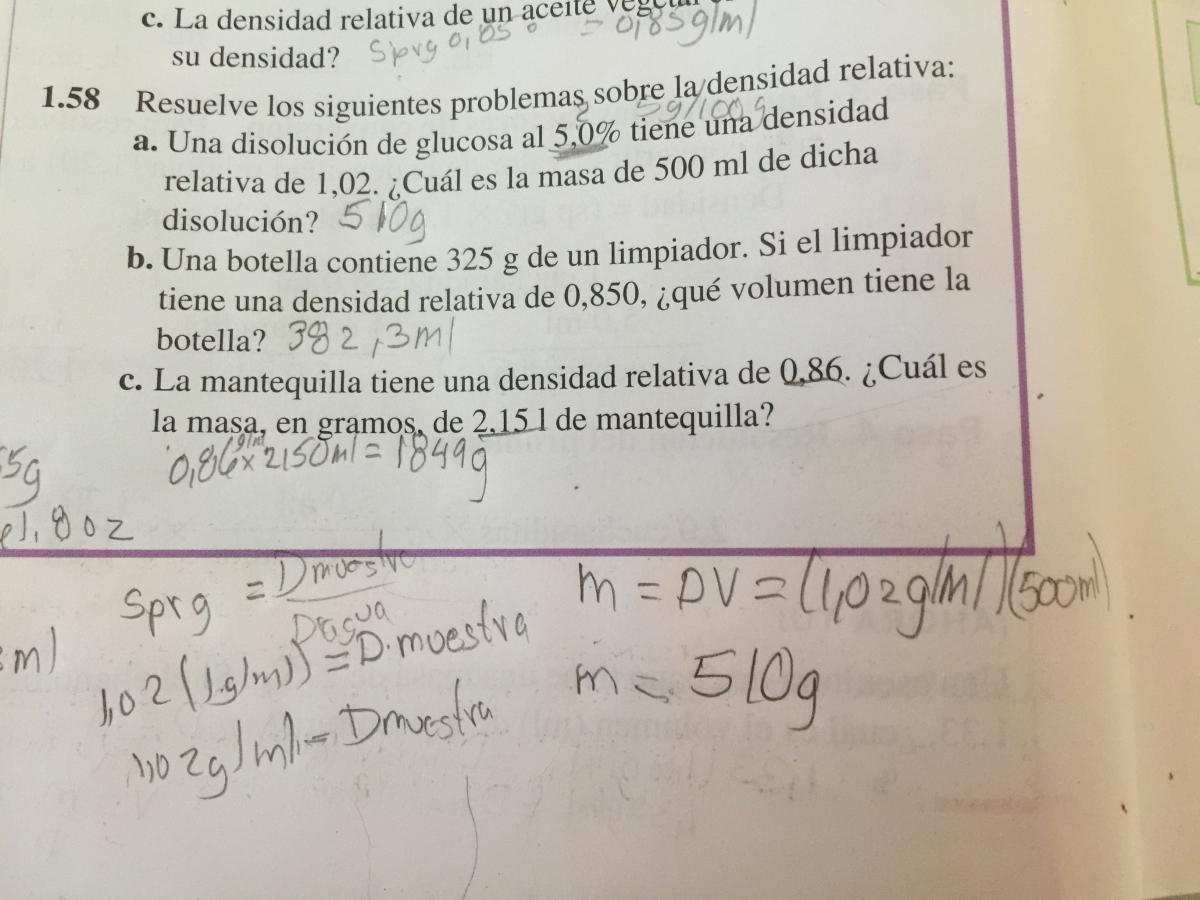 c. La densidad relativa de un aceite vegetal
su densidad? Sprg 0,85 = 0,85g/ml
1.58 Resuelve los siguientes problemas sobre la densidad relativa:
5g/100g
a. Una disolución de glucosa al 5,0% tiene una densidad
relativa de 1,02. ¿Cuál es la masa de 500 ml de dicha
disolución? 510g
b. Una botella contiene 325 g de un limpiador. Si el limpiador
tiene una densidad relativa de 0,850, ¿qué volumen tiene la
botella? 382,3ml
c. La mantequilla tiene una densidad relativa de 0,86. ¿Cuál es
la masa, en gramos, de 2,15 l de mantequilla?
0,86 g/ml x 2150ml = 1849g
5g
1,8oz
Sprg = Dmuestra
Dagua
1,02 (1g/ml) = D.muestra
1,02g/ml = Dmuestra
m = DV = (1,02g/ml)(500ml)
m = 510g
ml